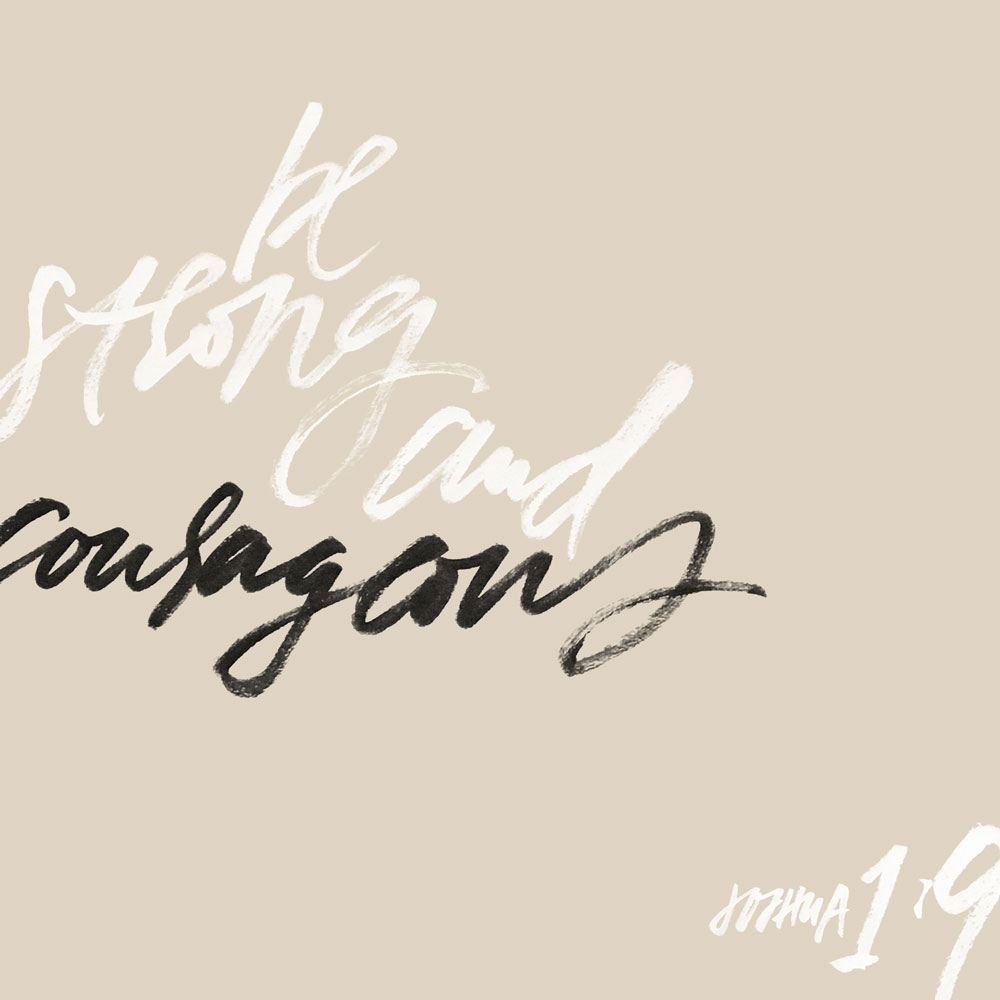 be
strong
and
courageous
JOSHUA 1:9